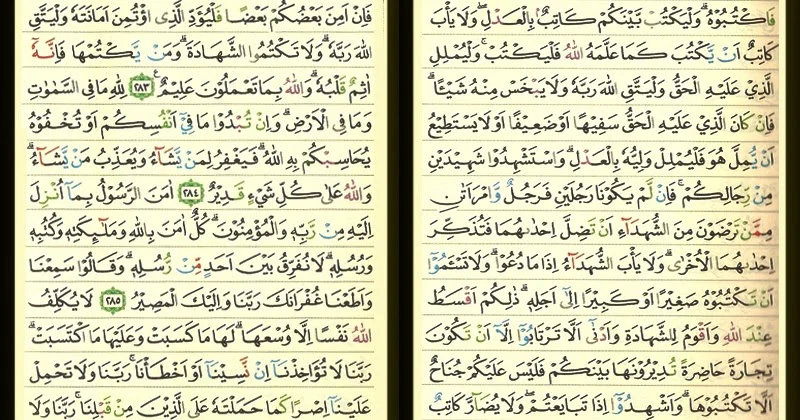 فَاكْتُبُوْهُ ۗ وَلْيَكْتُبْ بَّيْنَكُمْ كَاتِبٌ بِالْعَدْلِ ۖ وَلَا يَأْبَ
كَاتِبٌ اَنْ يَّكْتُبَ كَمَا عَلَّمَهُ اللهُ فَلْيَكْتُبْ ۚ وَلْيُمْلِلِ
الَّذِيْ عَلَيْهِ الْحَقُّ وَلْيَتَّقِ اللهَ رَبَّهٗ وَلَا يَبْخَسْ مِنْهُ شَيْئًا ۗ
فَاِنْ كَانَ الَّذِيْ عَلَيْهِ الْحَقُّ سَفِيْهًا اَوْ ضَعِيْفًا اَوْ لَا يَسْتَطِيْعُ
اَنْ يُّمِلَّ هُوَ فَلْيُمْلِلْ وَلِيُّهٗ بِالْعَدْلِ ۗ وَاسْتَشْهِدُوْا شَهِيْدَيْنِ
مِنْ رِّجَالِكُمْ ۚ فَاِنْ لَّمْ يَكُوْنَا رَجُلَيْنِ فَرَجُلٌ وَّامْرَاَتٰنِ
مِمَّنْ تَرْضَوْنَ مِنَ الشُّهَدَآءِ اَنْ تَضِلَّ اِحْدٰىهُمَا فَتُذَكِّرَ
اِحْدٰىهُمَا الْاُخْرٰى ۗ وَلَا يَأْبَ الشُّهَدَآءُ اِذَا مَا دُعُوْا ۗ وَلَا تَسْـَٔمُوْٓا
اَنْ تَكْتُبُوْهُ صَغِيْرًا اَوْ كَبِيْرًا اِلٰٓى اَجَلِهٖ ۗ ذٰلِكُمْ اَقْسَطُ
عِنْدَ اللهِ وَاَقْوَمُ لِلشَّهَادَةِ وَاَدْنٰٓى اَلَّا تَرْتَابُوْٓا اِلَّآ اَنْ تَكُوْنَ
تِجَارَةً حَاضِرَةً تُدِيْرُوْنَهَا بَيْنَكُمْ فَلَيْسَ عَلَيْكُمْ جُنَاحٌ
اَلَّا تَكْتُبُوْهَا ۗ وَاَشْهِدُوْٓا اِذَا تَبَايَعْتُمْ ۖ وَلَا يُضَآرَّ كَاتِبٌ
فَاِنْ اَمِنَ بَعْضُكُمْ بَعْضًا فَلْيُؤَدِّ الَّذِى اؤْتُمِنَ اَمَانَتَهٗ وَلْيَتَّقِ
اللهَ رَبَّهٗ ۗ وَلَا تَكْتُمُوا الشَّهَادَةَ ۗ وَمَنْ يَّكْتُمْهَا فَاِنَّهٗٓ
اٰثِمٌ قَلْبُهٗ ۗ وَاللهُ بِمَا تَعْمَلُوْنَ عَلِيْمٌ ۝٢٨٣ لِلّٰهِ مَا فِى السَّمٰوٰتِ
وَمَا فِى الْاَرْضِ ۗ وَاِنْ تُبْدُوْا مَا فِيْٓ اَنْفُسِكُمْ اَوْ تُخْفُوْهُ
يُحَاسِبْكُمْ بِهِ اللهُ ۗ فَيَغْفِرُ لِمَنْ يَّشَآءُ وَيُعَذِّبُ مَنْ يَّشَآءُ ۗ
وَاللهُ عَلٰى كُلِّ شَيْءٍ قَدِيْرٌ ۝٢٨٤ اٰمَنَ الرَّسُوْلُ بِمَآ اُنْزِلَ
اِلَيْهِ مِنْ رَّبِّهٖ وَالْمُؤْمِنُوْنَ ۗ كُلٌّ اٰمَنَ بِاللهِ وَمَلٰٓىِٕكَتِهٖ وَكُتُبِهٖ
وَرُسُلِهٖ ۗ لَا نُفَرِّقُ بَيْنَ اَحَدٍ مِّنْ رُّسُلِهٖ ۗ وَقَالُوْا سَمِعْنَا
وَاَطَعْنَا غُفْرَانَكَ رَبَّنَا وَاِلَيْكَ الْمَصِيْرُ ۝٢٨٥ لَا يُكَلِّفُ
اللهُ نَفْسًا اِلَّا وُسْعَهَا ۗ لَهَا مَا كَسَبَتْ وَعَلَيْهَا مَا اكْتَسَبَتْ ۗ
رَبَّنَا لَا تُؤَاخِذْنَآ اِنْ نَّسِيْنَآ اَوْ اَخْطَأْنَا ۚ رَبَّنَا وَلَا تَحْمِلْ
عَلَيْنَآ اِصْرًا كَمَا حَمَلْتَهٗ عَلَى الَّذِيْنَ مِنْ قَبْلِنَا ۚ رَبَّنَا وَلَا